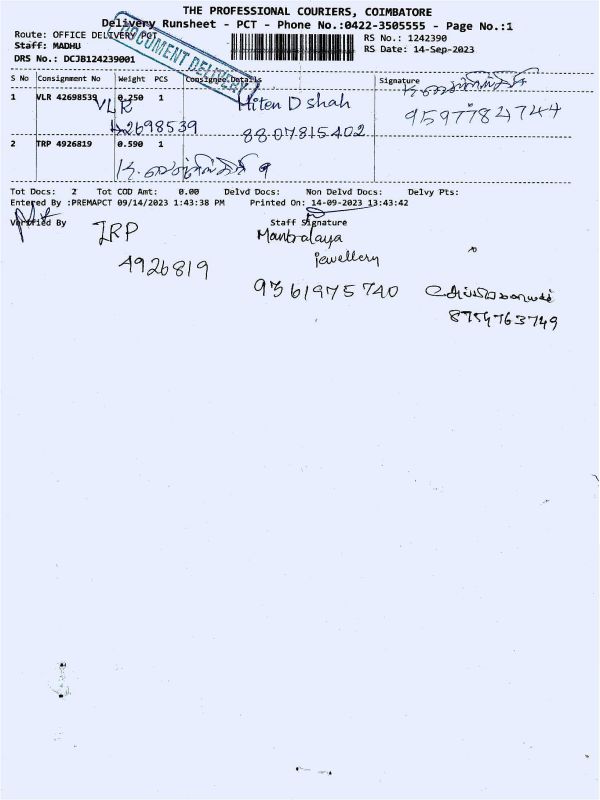 THE PROFESSIONAL COURIERS, COIMBATORE
Delivery Runsheet - PCT - Phone No.:0422-3505555 - Page No.:1
Route: OFFICE DELIVERY PCT
RS No.: 1242390
Staff: MADHU
RS Date: 14-Sep-2023
DRS No.: DCJB124239001
DOCUMENT DELIVERY
S No Consignment No Weight PCS Consignee Details Signature
1 VLR 42698539 0.250 1
VLR
42698539
Hiten D shah
8807815402
9597784744
2 TRP 4926819 0.590 1
Tot Docs: 2 Tot COD Amt: 0.00 Delvd Docs: Non Delvd Docs: Delvy Pts:
Entered By :PREMAPCT 09/14/2023 1:43:38 PM Printed On: 14-09-2023 13:43:42
Verified By Staff Signature
TRP
4926819
Mantralaya
jewellery
9361975740
8754763749